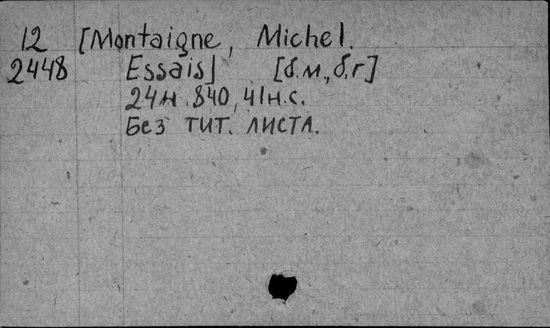 12 [Montaigne, Michel.
2448 Essais] [б.м., б.г]
24н. 840, 41н.с.
Без тит. листа.